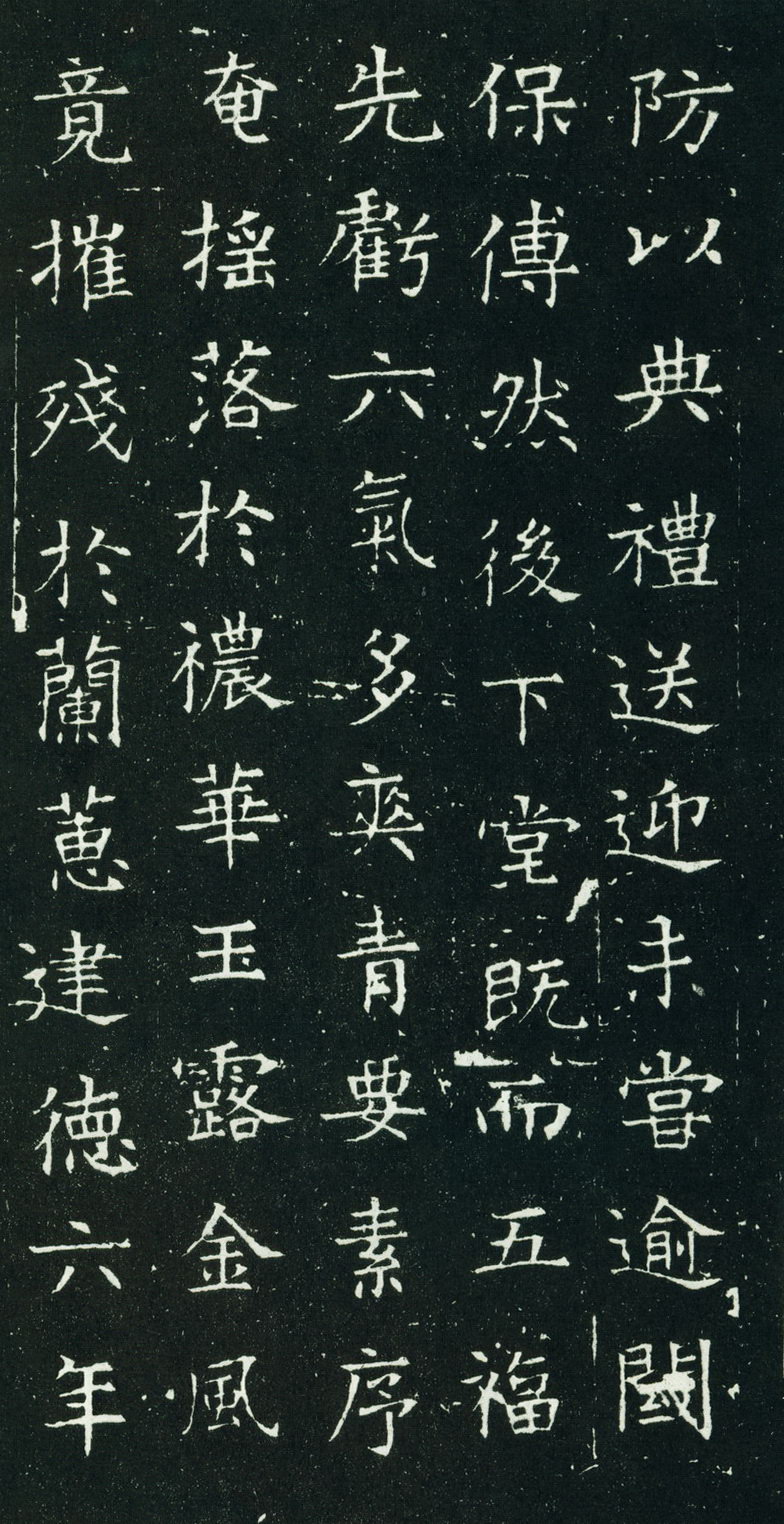 防以典禮送迎未嘗逾閾
保傅然後下堂既而五福
先虧六氣多爽青要素序
奄搖落於禯華玉露金風
竟摧殘於蘭蕙建德六年